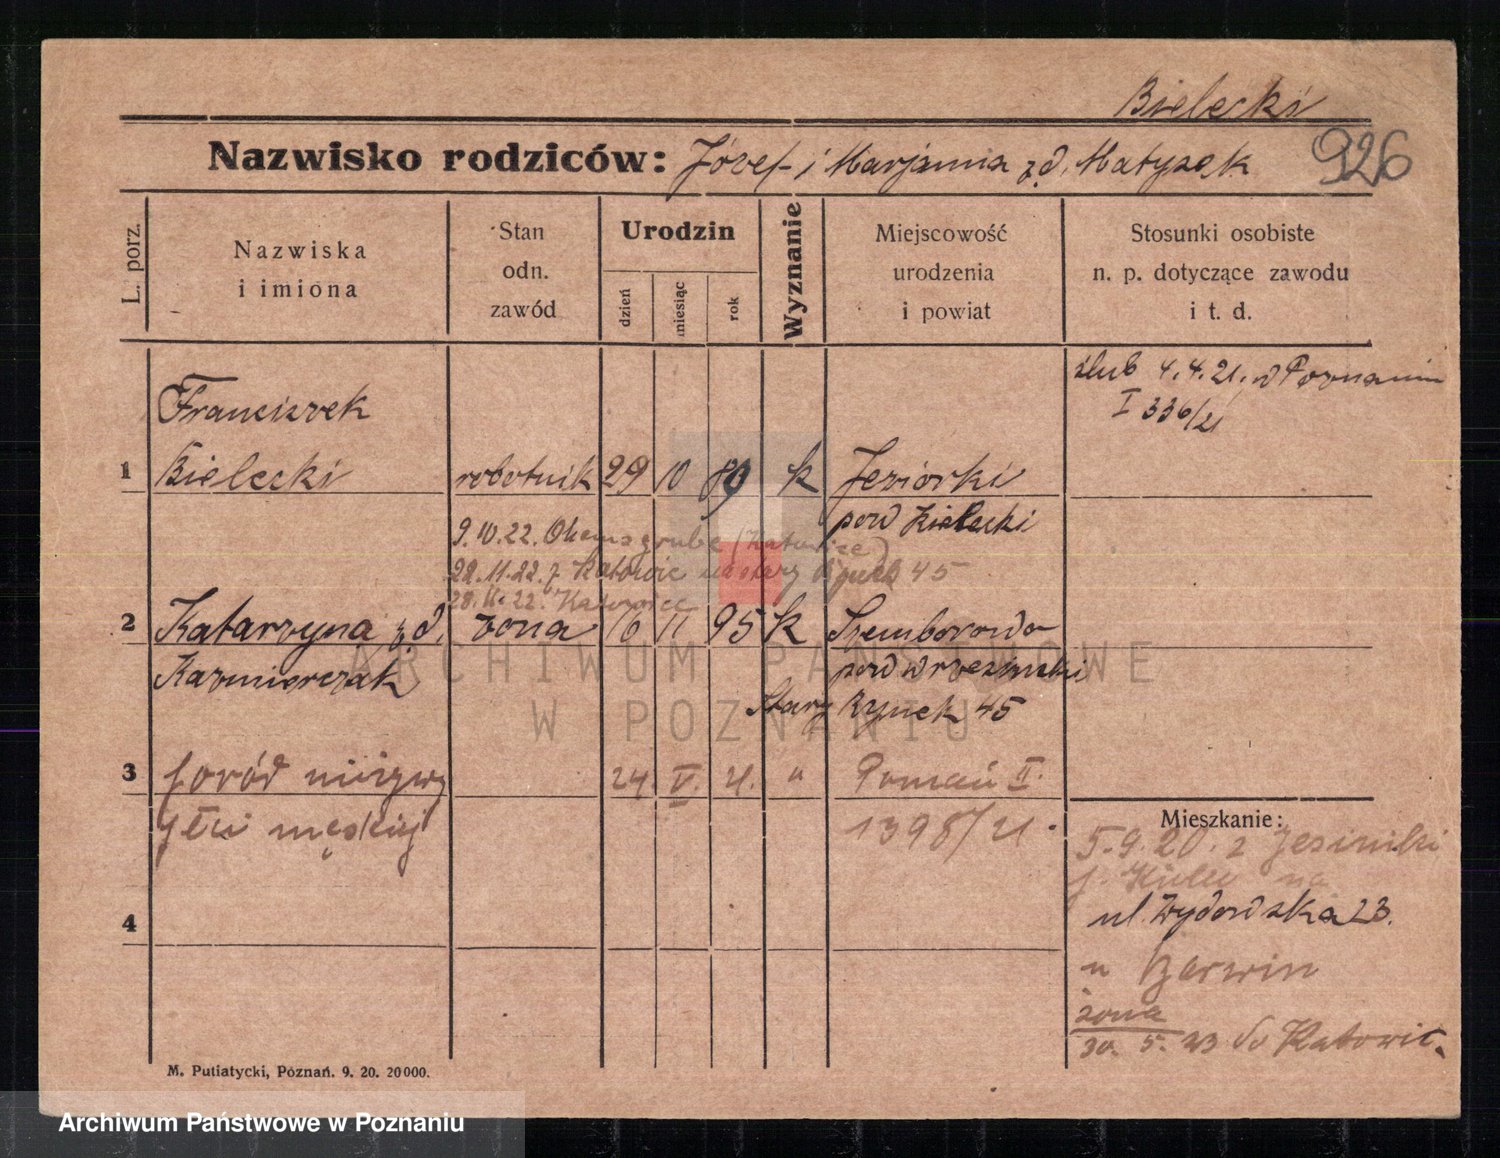 Bielecki
Nazwisko rodziców: Józef i Marjanna z d. Matysek
926
L. porz.
Nazwiska
i imiona
Stan
odn.
zawód
Urodzin
dzień
miesiąc
rok
Wyznanie
Miejscowość
urodzenia
i powiat
Stosunki osobiste
n. p. dotyczące zawodu
i t. d.
ślub 4.4.21. w Poznaniu
I 336/21
Franciszek
1 Bielecki robotnik 29 10 89 k Jeziorki
pow Kielecki
9.10.22. (Katowice)
22.11.22. z Katowic na stary Rynek 45
28.11.22. Katowice
2 Katarzyna z d. żona 16 11 95 k Szemborowo
Kazmierczak pow wrzesiński
Stary Rynek 45
3 poród nieżywy 24 V. 21. " Poznań II.
płci męskiej 1398/21.
Mieszkanie:
5.9.20. z
p. Kielce na
ul. 23.
u Barwin
4
żona
30. 5. 23 do Katowic.
M. Putiatycki, Poznań. 9. 20. 20000.
ARCHIWUM PAŃSTWOWE
W POZNANIU
Archiwum Państwowe w Poznaniu